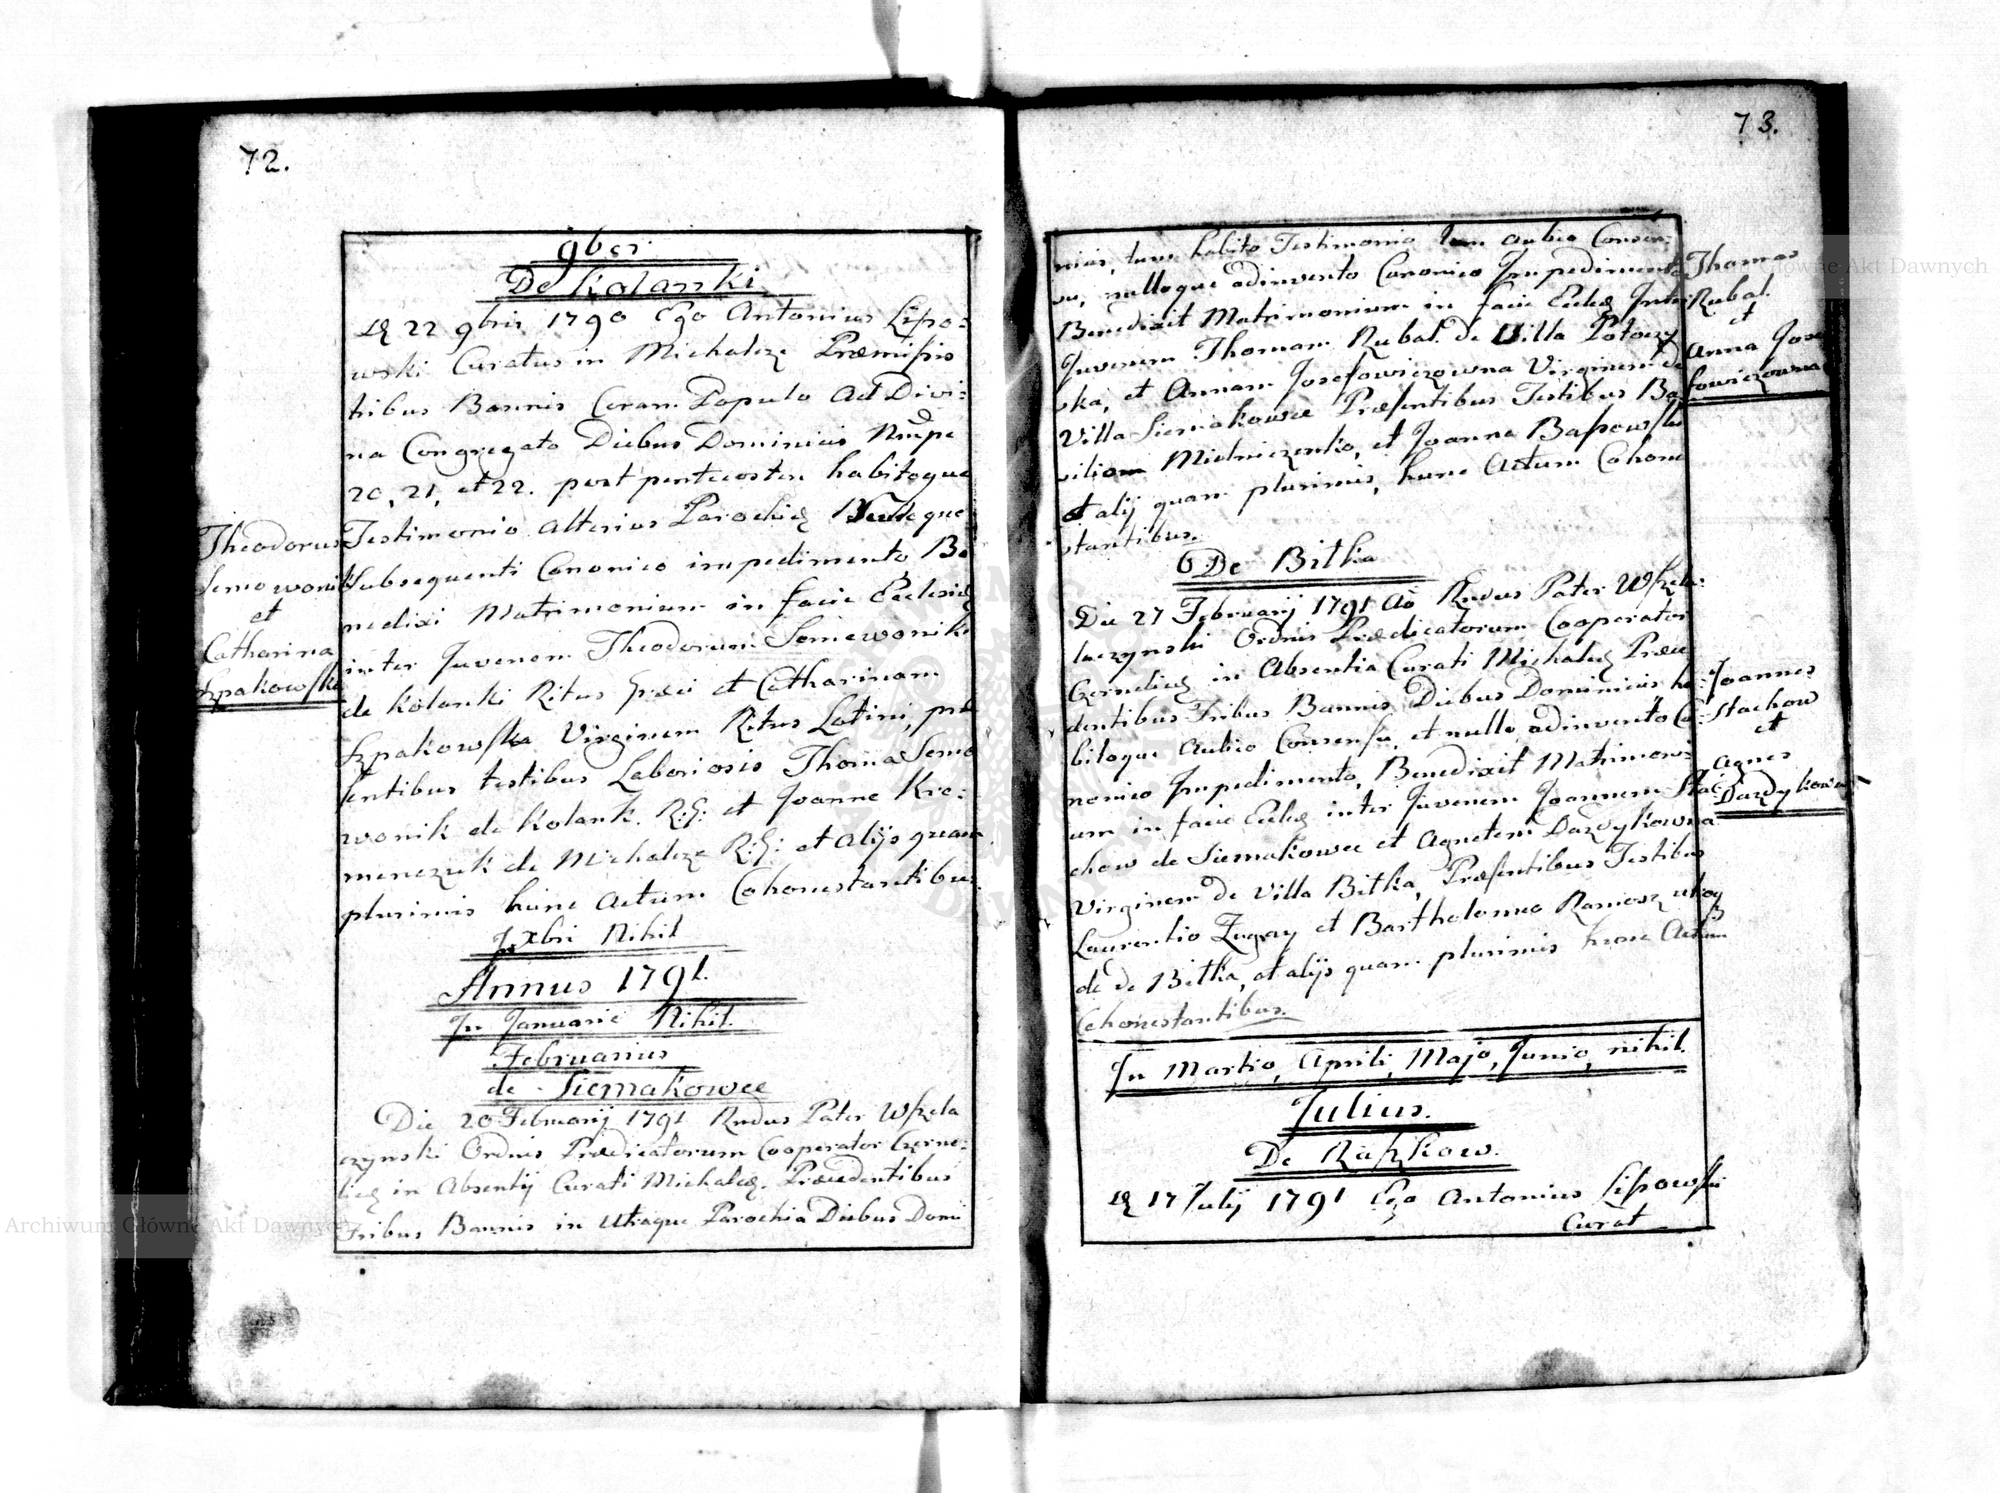 72.
9ber
De Kolanki
22 9bris 1790 Ego Antonius Lipo=
wski Curatus in Michalcze Præmissis
tribus Bannis Coram Populo Ad Divi=
na Congregato Diebus Dominicis Nmpe
20, 21, et 22. post pentecosten habitoque
Testimonio alterius Parochiæ Nulloque
Subsequenti Canonico impedimento, Be
nedixi Matrimonium in facie Ecclesiæ
inter Juvenem Theodorum Semewonik
de Kolanki Ritus Græci et Catharinam
Szpakowska Virginem Ritus Latini, præ
sentibus testibus Laboriosis Thoma Semo
wonik de Kolank. R: G: et Joanne Kre=
menczuk de Michalcze R: G: et alijs quam
plurimis hunc Actum Cohonestantibus.
Theodorus
Semowonik
et
Catharina
Szpakowska
In Xbri Nihil
Annus 1791.
In Januario Nihil.
Februarius
de Siemakowce
Die 20 Februarij 1791 Rndus Pater Wszela
czynski Ordnis Prædicatorum Cooperator Czerne=
licæ in Absentij Curati Michalcæ. Præcedentibus
Tribus Bannis in Utraque Parochia Diebus Domi
73.
nicis, tum habito Testimonio tum aulico Consen=
su, nulloque adinvento Canonico Impedimento
Benedixit Matrimonium in facie Eccleæ Inter
Juvenem Thomam Rubal. de Villa Potoczy
ska, et Annam Josefowiczowna Virginem de
Villa Siemakowce Præsentibus Testibus Ba
silio Mielniczenko, et Joanne Bassowski
et alij quam plurimis, hunc Actum Cohone
stantibus.
Thomas
Rubal.
et
Anna Jose
fowiczowna
De Bitka
Die 27 Februarij 1791 Ao Rndus Pater Wszela=
laczynski Ordnis Prædicatorum Cooperator
Czernelicæ in Absentia Curati Michalcæ Præce
dentibus Tribus Bannis Diebus Dominicis ha=
bitoque Aulico Consensu, et nullo adinvento Ca=
nonico Impedimento, Benedixit Matrimoni=
um in facie Eccleæ inter Juvenem Joannem Sta=
chow de Siemakowce et Agnetem Dazdykowna
Virginem de Villa Bitka, Præsentibus Testibus
Laurentio Zugay et Bartholomeo Raniosz utroq
de de Bitka, et alijs quam plurimis hunc Actum
Cohonestantibus.
Joannes
Stachow
et
Agnes
Dazdykowna
In Martio, Aprili, Majo, Junio, nihil.
Julius.
De Raszkow.
17 Julij 1791 Ego Antonius Lipowski
Curat
Archiwum Główne Akt Dawnych
Archiwum Główne Akt Dawnych